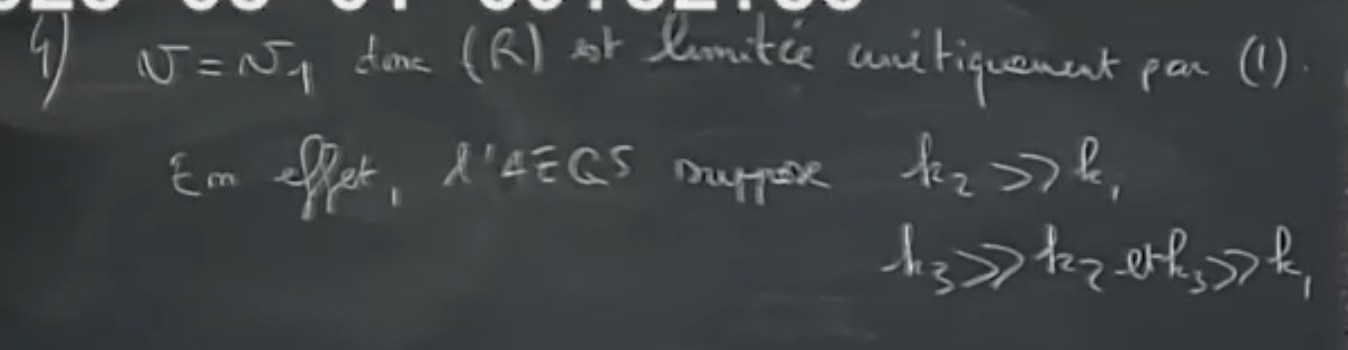 4) v = v₁ donc (R) est limitée cinétiquement par (1).
En effet, l'AEQS suppose k₂ >> k₁
k₃ >> k₂ et k₃ >> k₁